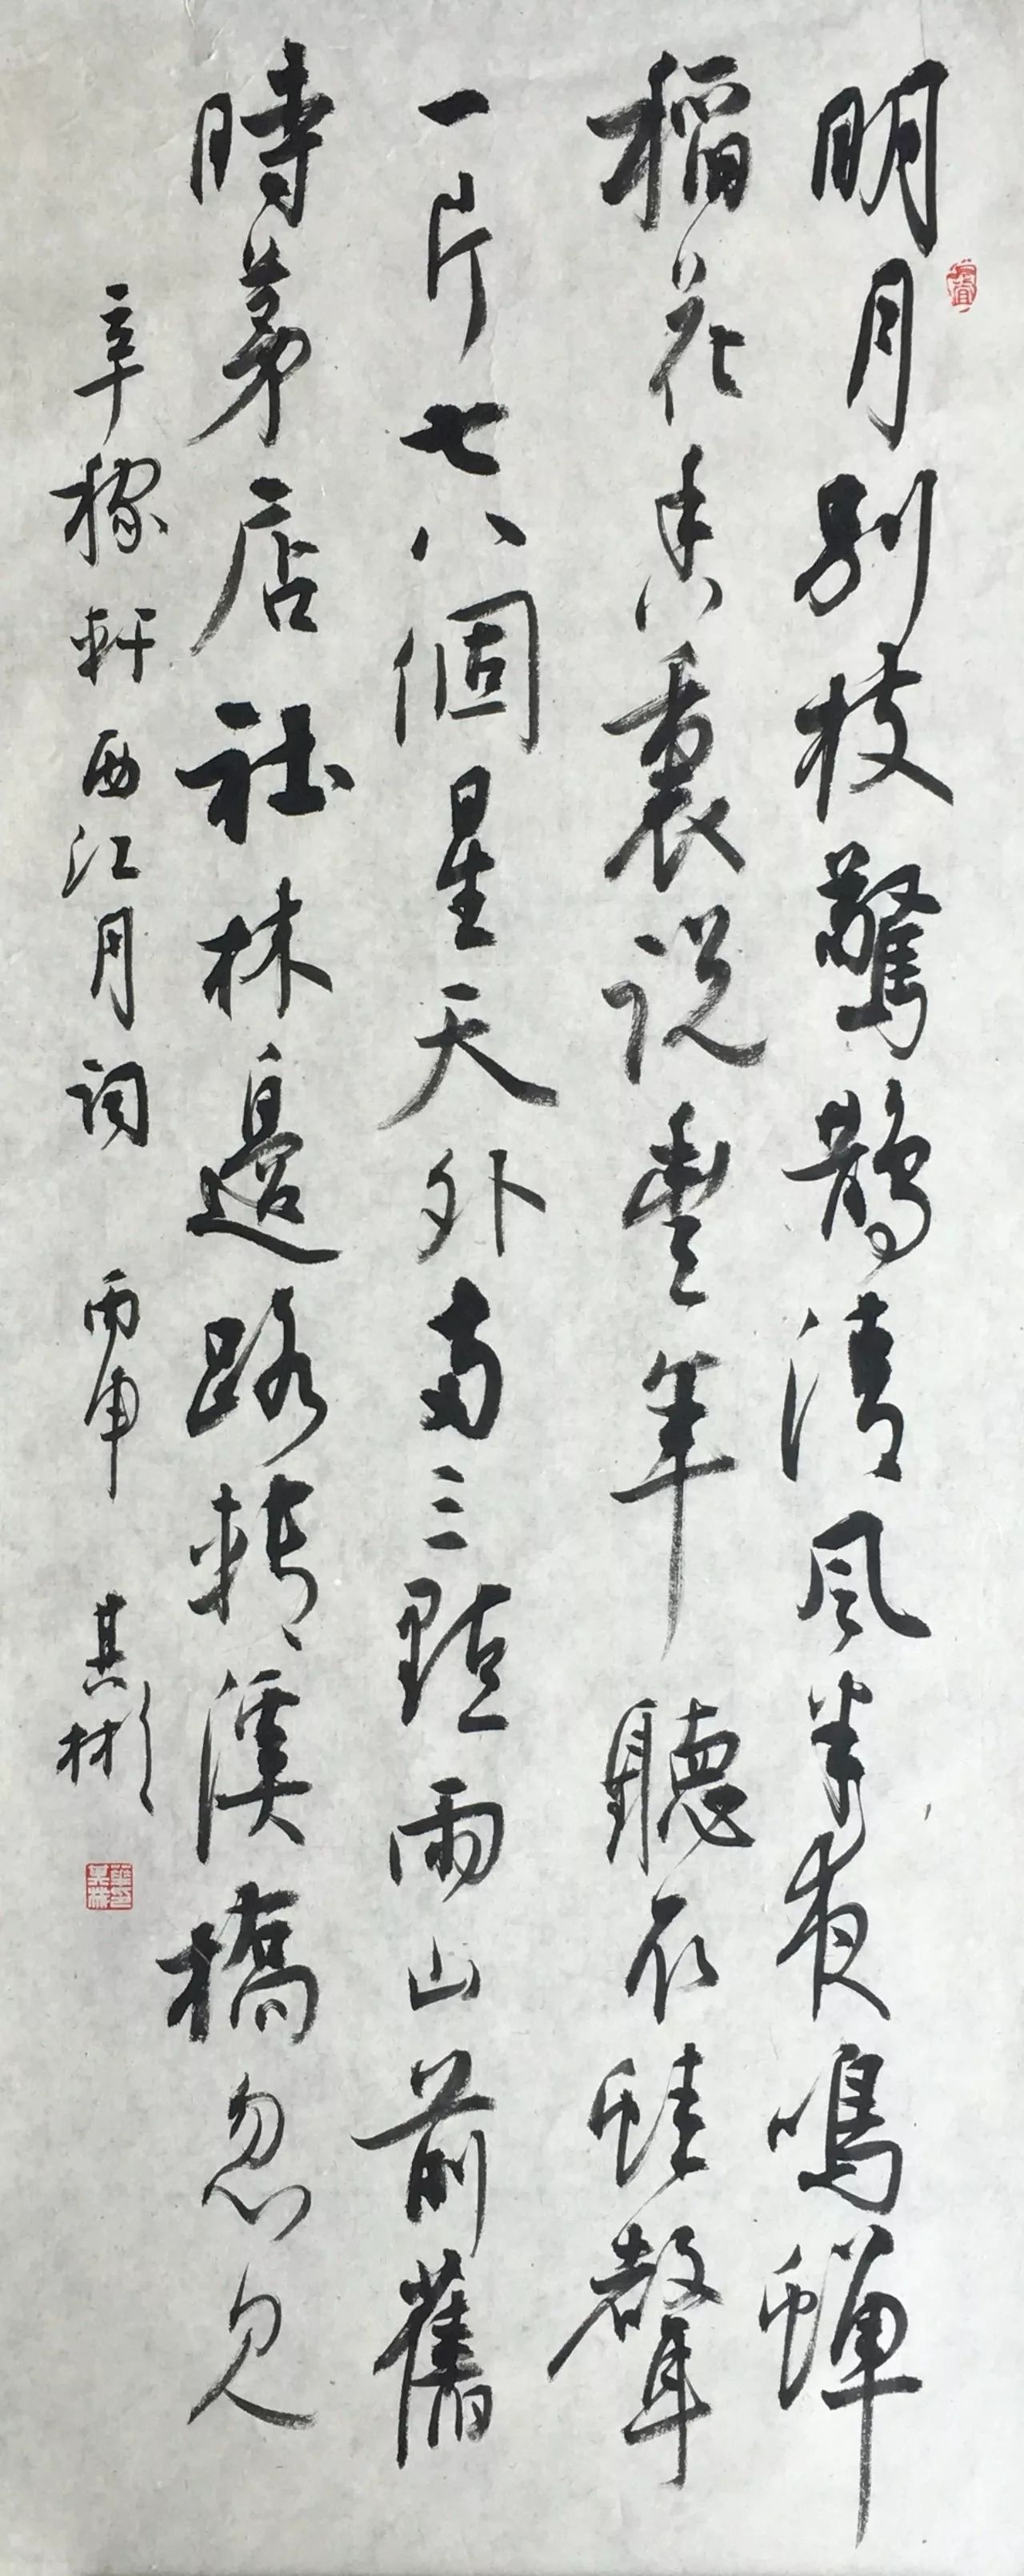 明月别枝驚鵲清風半夜鳴蟬
稻花香裏説豐年聽取蛙聲
一片七八個星天外兩三點雨山前舊
時茅店社林邊路轉溪橋忽見
辛稼軒西江月詞 丙申 其彬